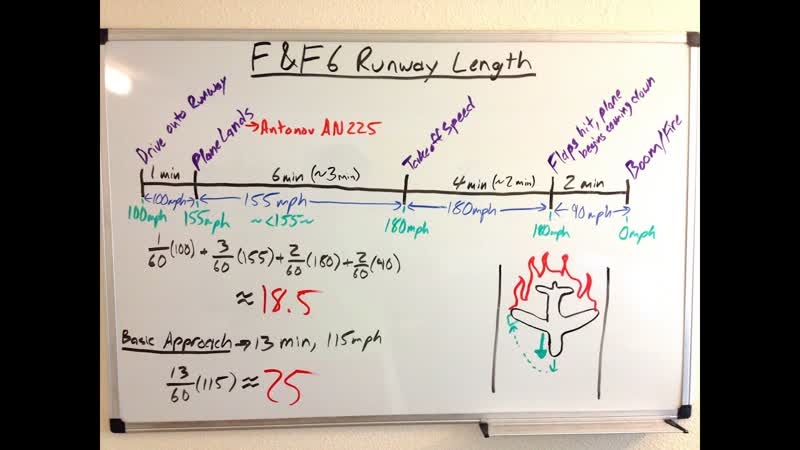 F&F6 Runway Length
Drive onto Runway
Plane Lands
→ Antonov AN225
Takeoff Speed
Flaps hit, plane
begins coming down
Boom/Fire
1 min
6 min (~3 min)
4 min (~2 min)
2 min
100mph
155mph
180mph
40mph
100mph
155mph
~<155~
180mph
180mph
0mph
1/60(100) + 3/60(155) + 2/60(180) + 2/60(40)
≈ 18.5
Basic Approach → 13 min, 115mph
13/60(115) ≈ 25